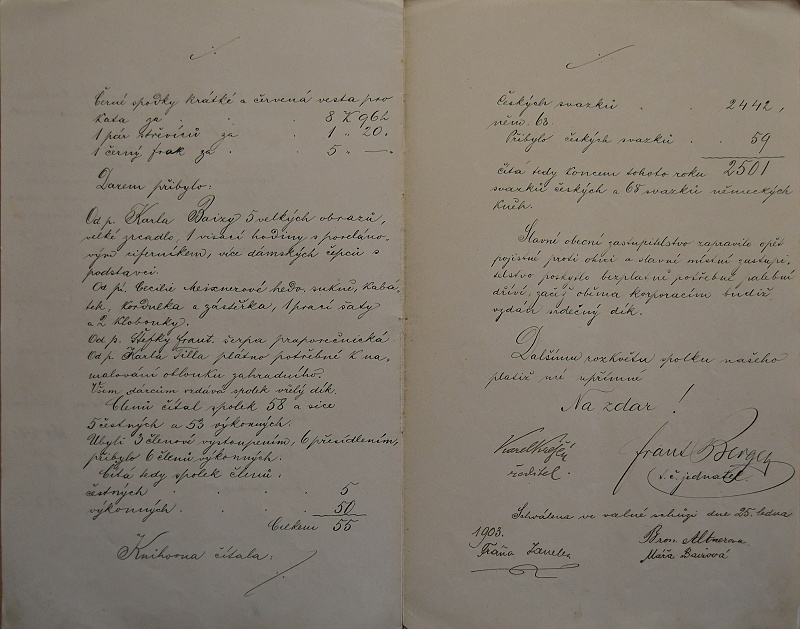 Černé spodky krátké a červená vesta pro
kata za . . . 8 K 96 h
1 pár střevíců za . . 1 " 20 "
1 černý frak za . . . 5 " —
Darem přibylo:
Od p. Karla Baizy 5 velkých obrazů,
velké zrcadlo, 1 visací hodiny s porcláno-
vým ciferníkem, více dámských čepců s
podstavci.
Od sl. Cecilie Meixnerové hedv. sukně, kabá-
tek, kordulka a zástěrka, 1 prací šaty
a 2 klobouky.
Od p. Štefky Frant. šerpa praporečnická.
Od p. Karla Tilla plátno potřebné k na-
malování oblouku zahradního.
Všem dárcům vzdává spolek vřelý dík.
Členů čítal spolek 58 a sice
5 čestných a 53 výkonných.
Ubyli 3 členové vystoupením, 6 přesídlením,
přibylo 6 členů výkonných.
Čítá tedy spolek členů:
čestných . . . . 5
výkonných . . . . 50
Celkem 55
Knihovna čítala:
českých svazků . . 2442,
něm. 68.
Přibylo českých svazků . . 59
čítá tedy koncem tohoto roku 2501
svazků českých a 68 svazků německých
knih.
Slavné obecní zastupitelstvo zapravilo opět
pojistné proti ohni a slavné místní zastupi-
telstvo poskytlo bezplatně potřebné palební
dříví, začež oběma korporacím budiž
vzdán srdečný dík.
Dalšímu rozkvětu spolku našeho
platiž mé upřímné
Na zdar!
Karel
ředitel.
Frant. Berger
t. č. jednatel.
Schválena ve valné schůzi dne 25. ledna
1903.
Fráňa
Bron. Altnerova
Máňa